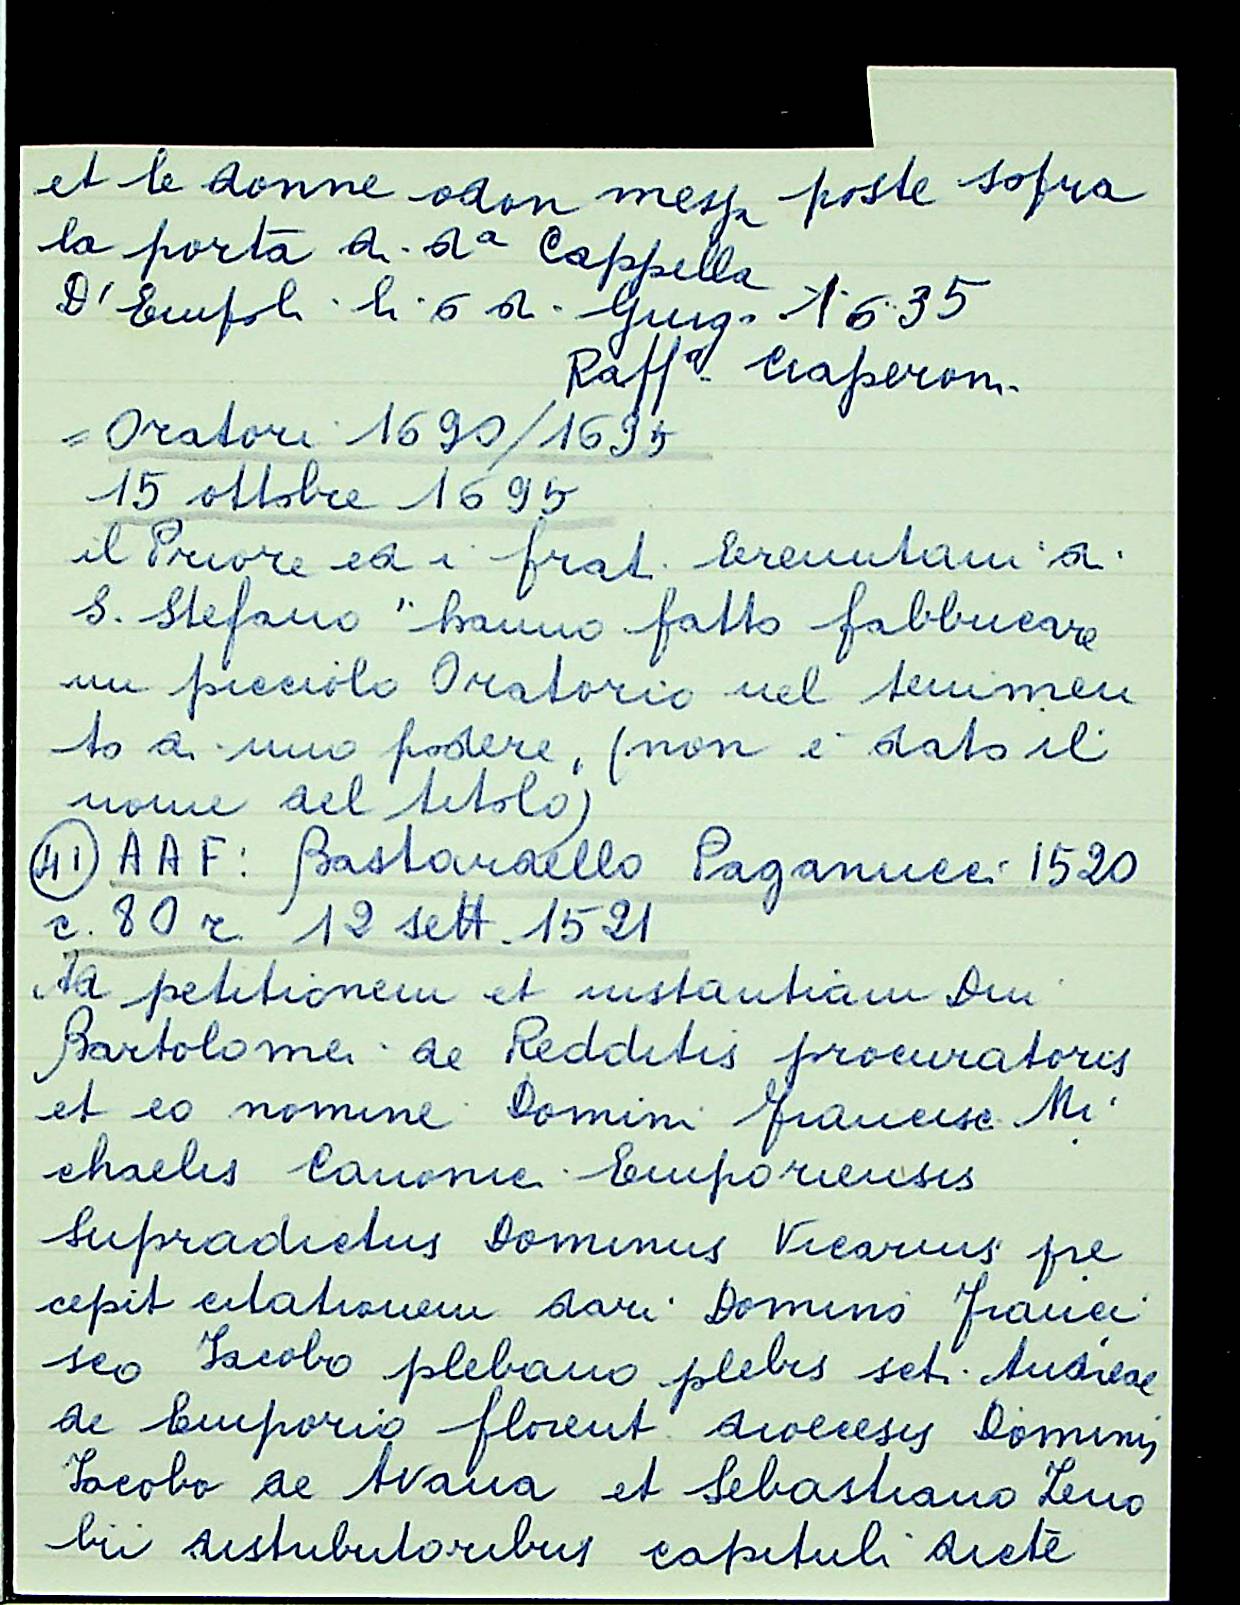 et le donne odon messa poste sopra
la porta di da Cappella
D'Empoli li 6 di Giug. 1635
Raffa. Ciaperoni.
= Oratori 1690/1695
15 ottobre 1695
il Priore ed i frat. Eremitani di
S. Stefano "hanno fatto fabbricare
un picciolo Oratorio nel tenimen
to di uno podere, (non è dato il
nome del titolo)
(41) AAF: Bastardello Paganucci 1520
c. 80 r. 12 sett. 1521
Ad petitionem et instantiam Dni
Bartolomei de Redditis procuratoris
et eo nomine Domini Francisc Mi
chaelis Canonici Emporiensis
Supradictus Dominus Vicarius pre
cepit citationem dari Domino Franci
sco Iacobo plebano plebis scti. Andreae
de Emporio florent diocesis Dominis
Iacobo de Avana et Sebastiano Zeno
bii distributoribus capituli dicte